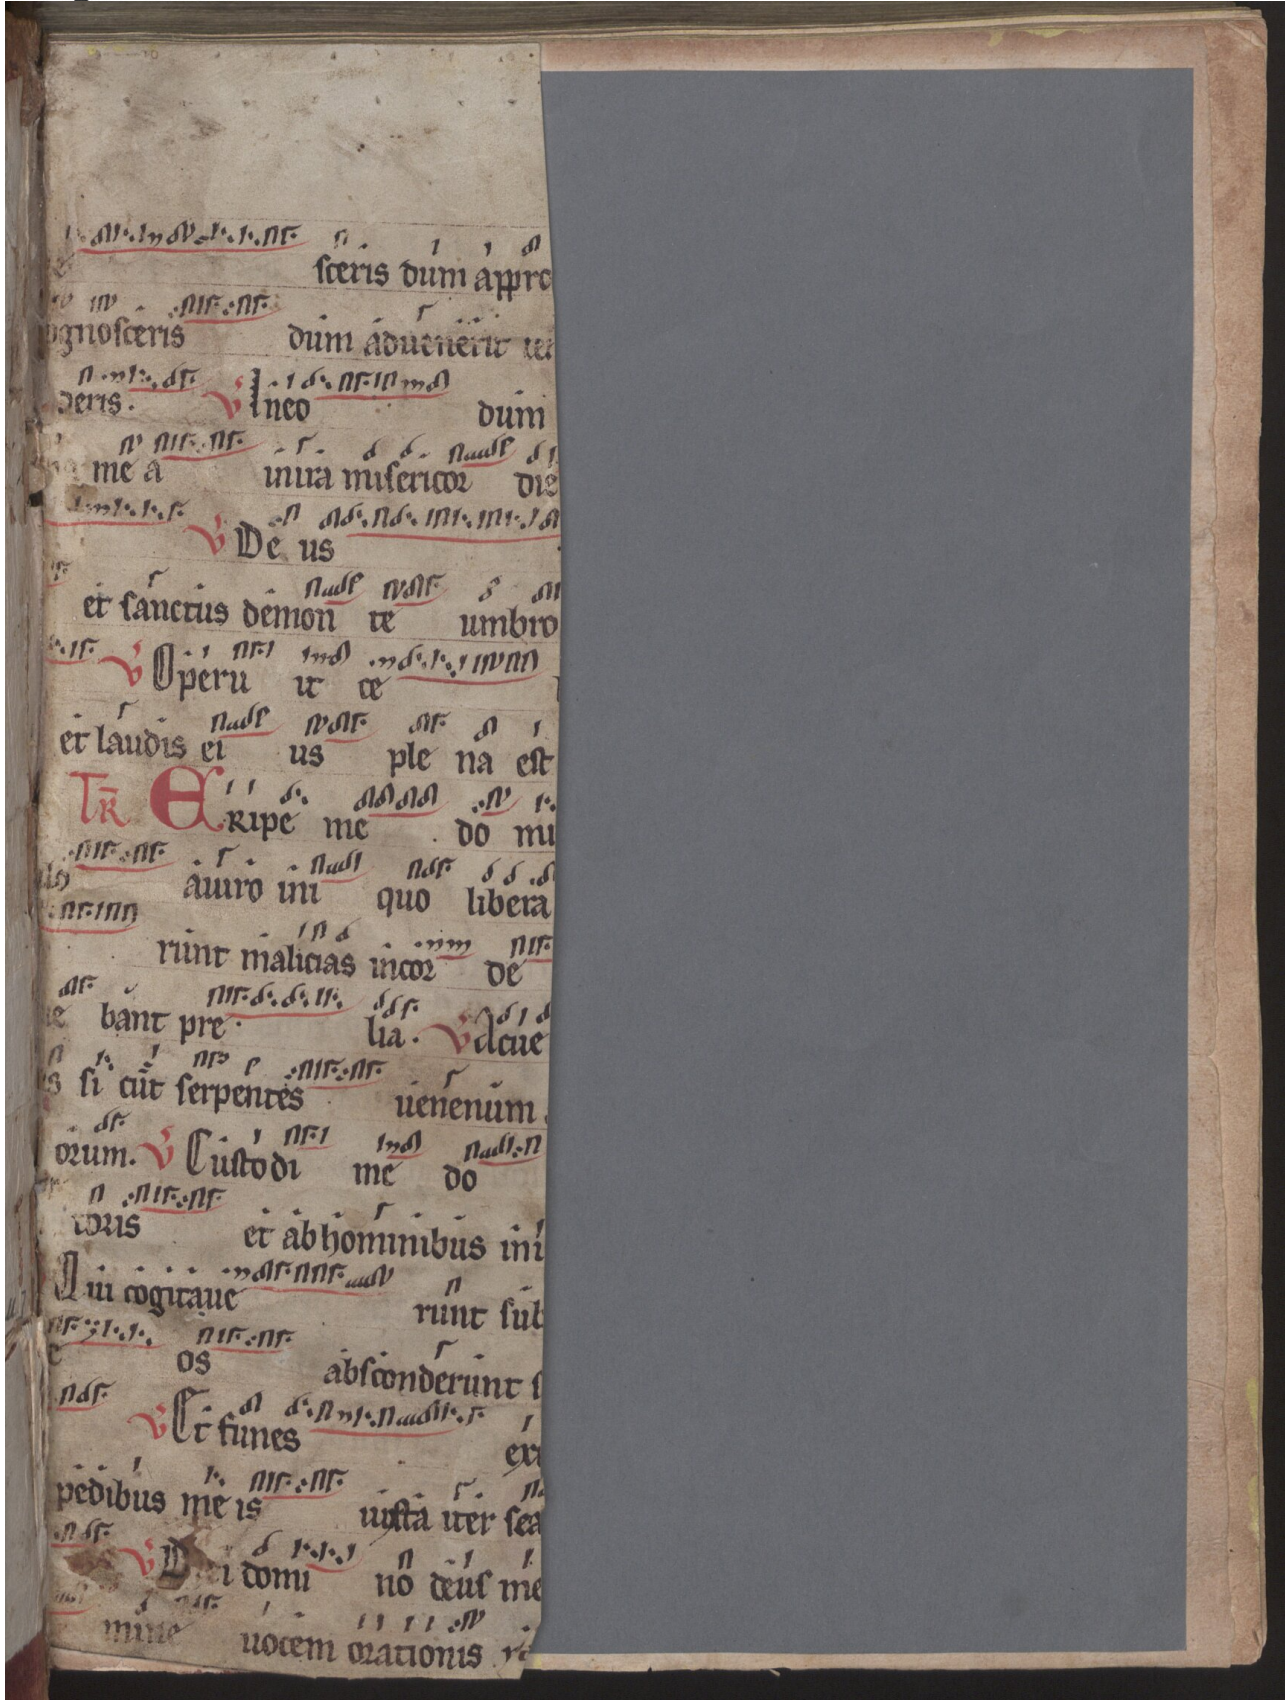 sceris dum appro
ognosceris dum aduenerit
deris. V In eo dum
me a in ira misericor die
V De us
et sanctus de mon te umbro
V Operu it ce
et laudis ei us ple na est
TR Eripe me do mi
a uiro ini quo libera
runt malicias in cor de
bant pre lia. V Acue
si cut serpentes uenenum
orum. V Custodi me do
toris et ab hominibus ini
Qui cogitaue runt sub
os absconderunt s
V Et funes ex
pedibus me is iuxta iter sca
V D i domi no deus me
uocem orationis